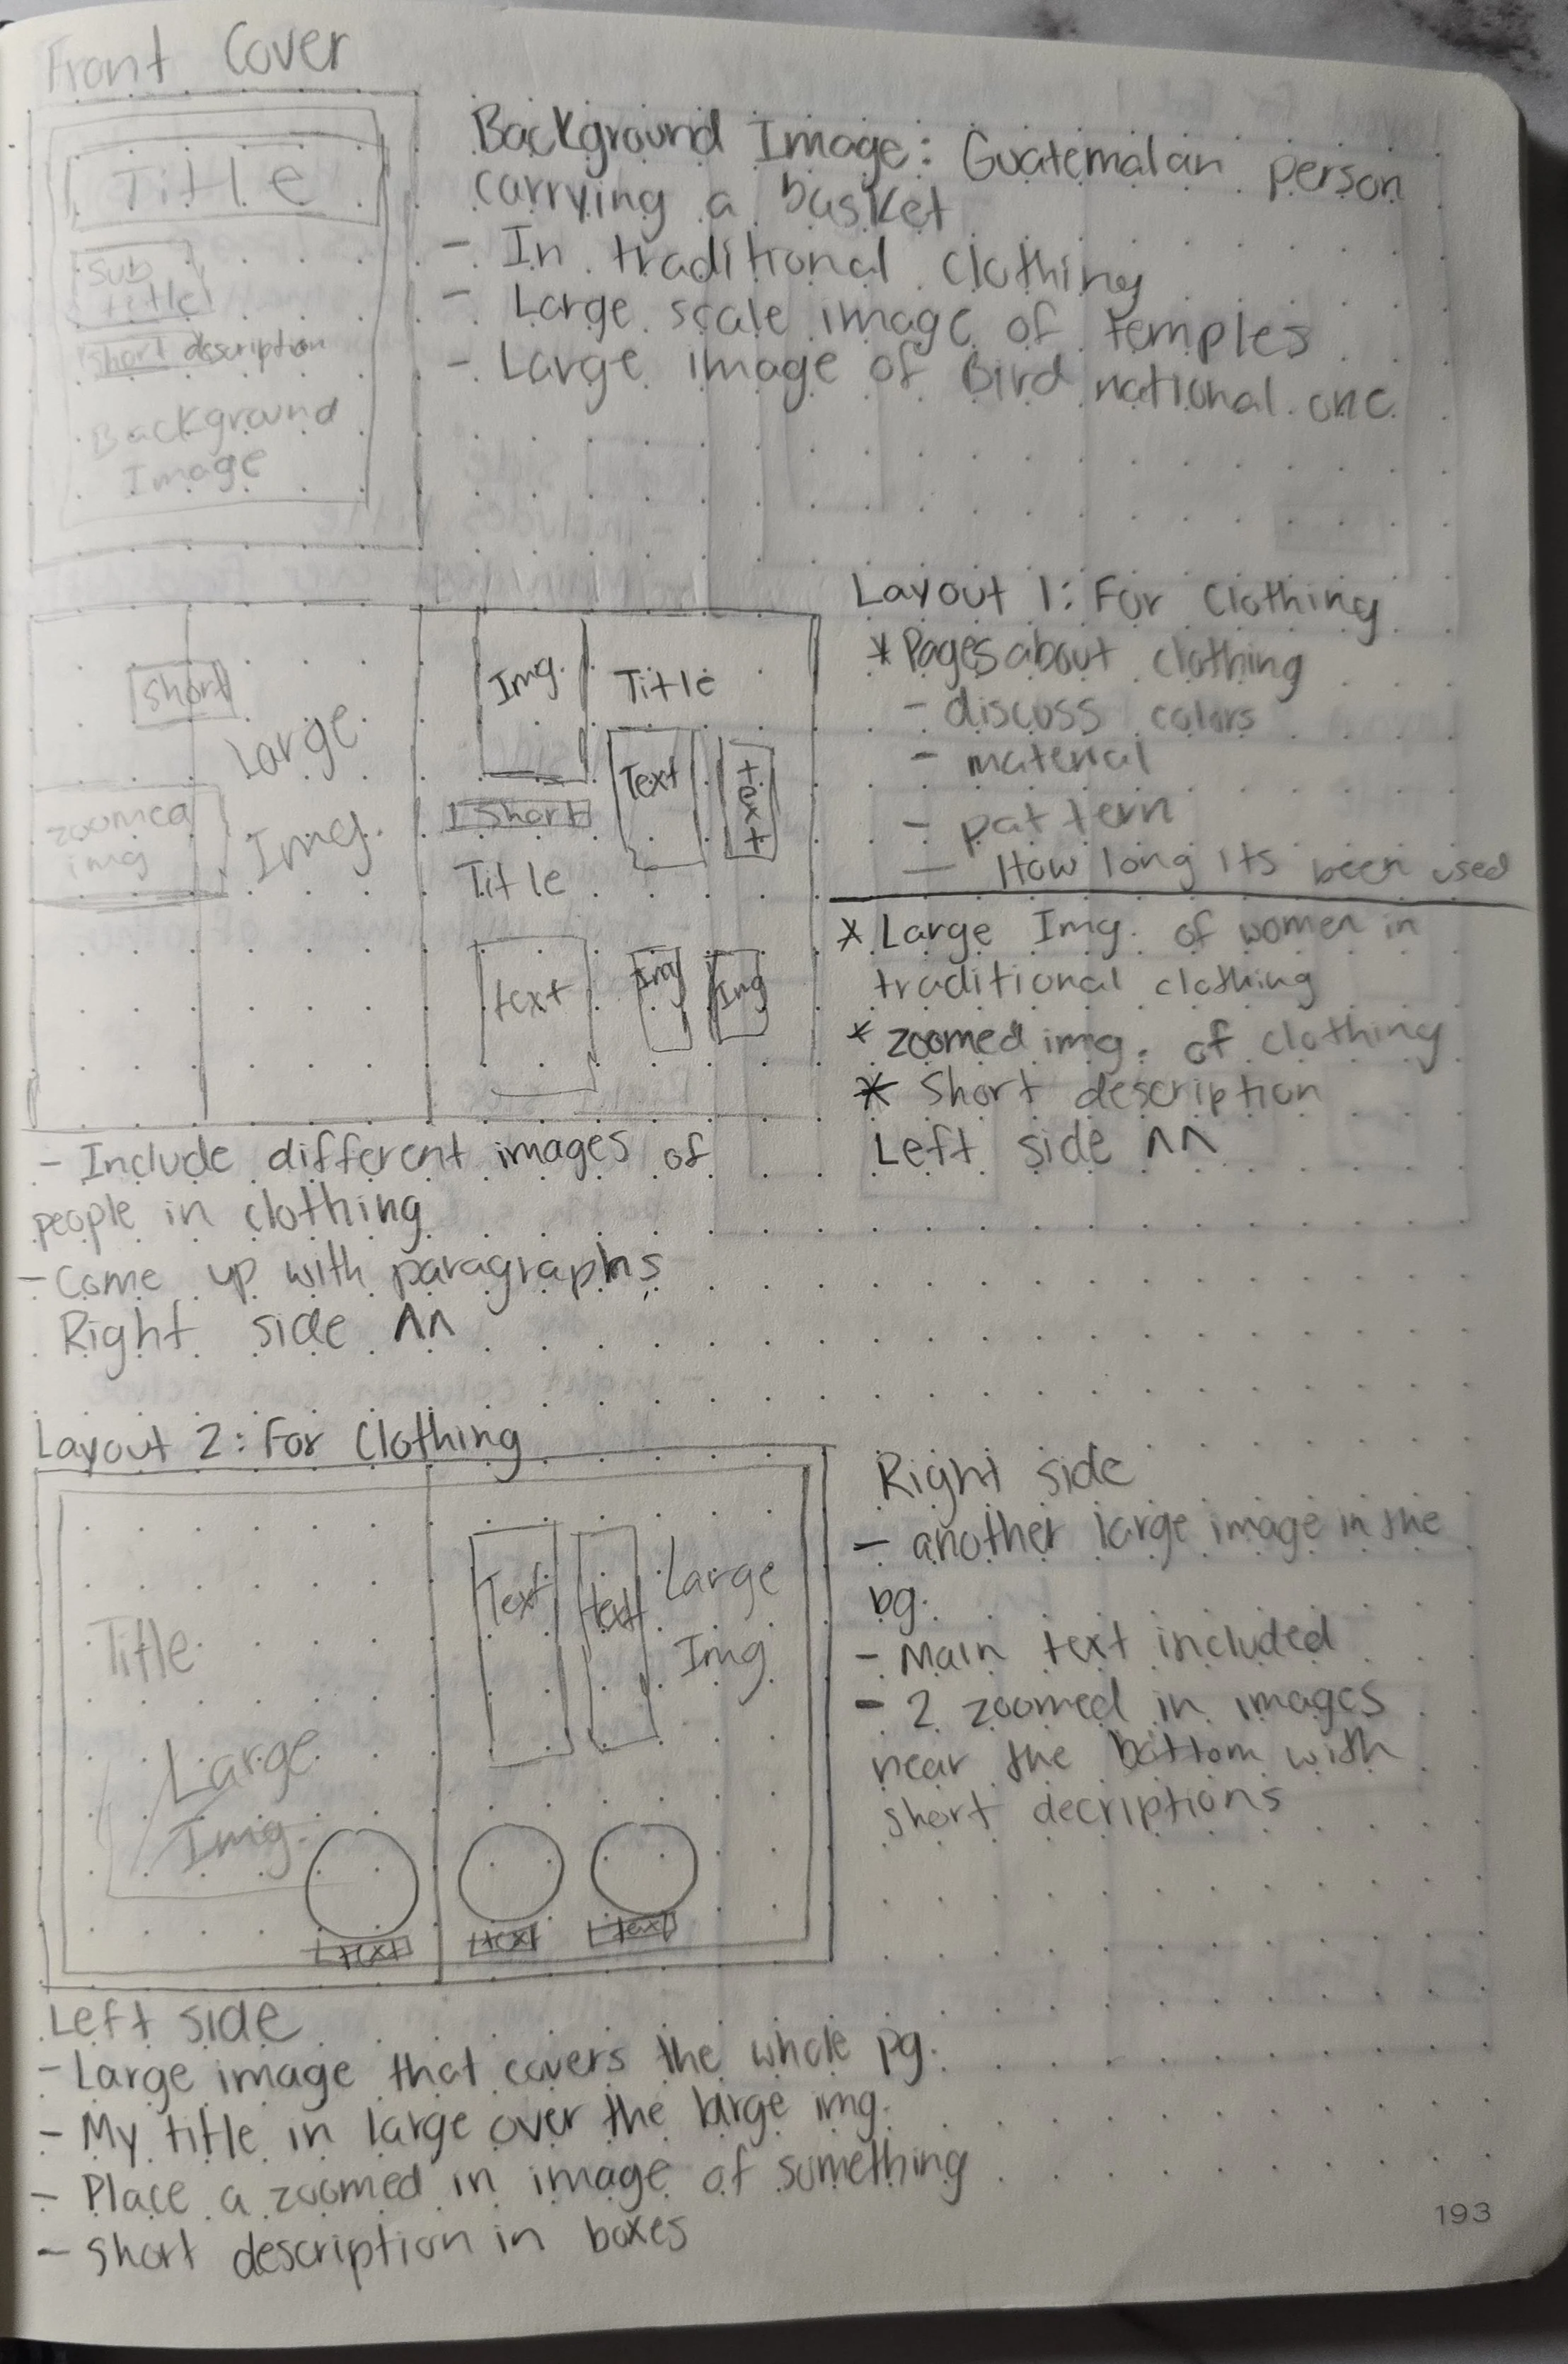 Front Cover
Title
Sub
title
short description
Background
Image
Background Image: Guatemalan person
carrying a basket
- In traditional clothing
- Large scale image of temples
- Large image of Bird national one
short
Large
Img.
zoomed
img
Img.
Title
Text
text
Short
Title
text
Img
Img
Layout 1: For Clothing
* Pages about clothing
- discuss colors
- material
- pattern
- How long its been used
* Large Img. of women in
traditional clothing
* zoomed img. of clothing
* Short description
Left side ^^
- Include different images of
people in clothing
- Come up with paragraphs
Right side ^^
Layout 2: For Clothing
Title
Large
Img.
text
Text
text
Large
Img
text
text
Right side
- another large image in the
bg.
- Main text included
- 2 zoomed in images
near the bottom with
short decriptions
Left side
- Large image that covers the whole pg.
- My title in large over the large img.
- Place a zoomed in image of something
- short description in boxes
193